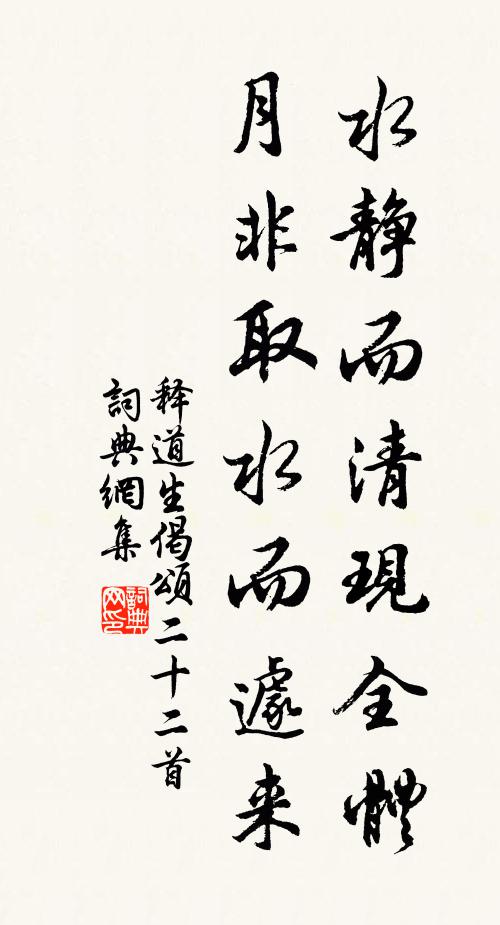 水静而清現全體
月非取水而遽来
释道生偈頌二十二首
詞典網集
詞典网印